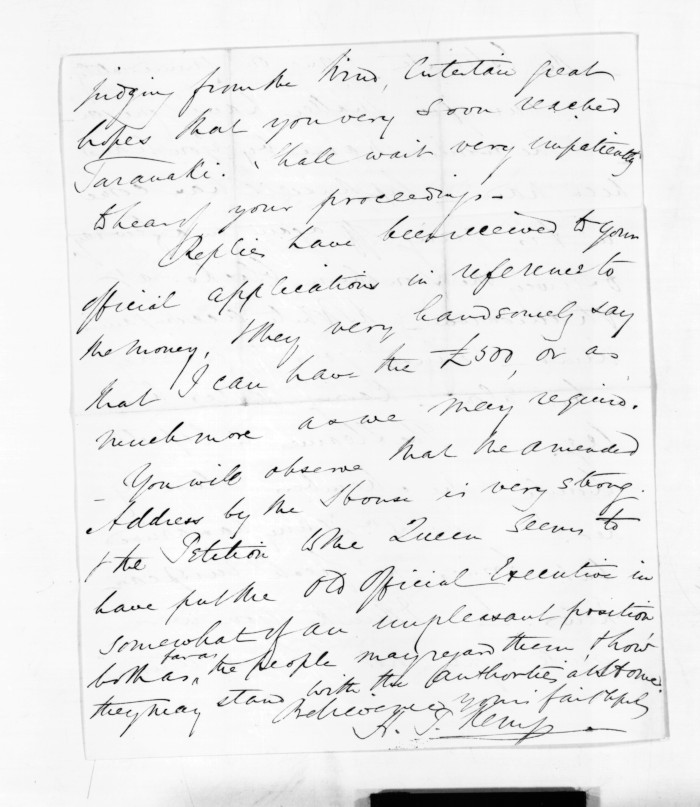 judging from the Wind, Entertain great
hopes that you very soon reached
Taranaki. Shall wait very impatiently
to hear of your proceedings -
Replies have been received to your
official applications in reference to
the money, & they very handsomely say
that I can have the £500, or as
much more as we may require.
- You will observe that the amended
Address by the House is very strong.
& the Petition to the Queen seems to
have put the Old Official Executive in
somewhat of an unpleasant position
both as far as the people may regard them, & how
they may stand with the authorities at Home.
Believe me yours faithfully
H. T. Kemp